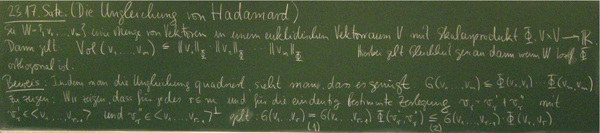 23.17. Satz. (Die Ungleichung von Hadamard)
Zu W = {v₁, ..., vₘ} eine Menge von Vektoren in einem euklidischen Vektorraum V mit Skalarprodukt Φ: V×V → ℝ
Dann gilt: Vol(v₁, ..., vₘ) ≤ ‖v₁‖ ‖v₂‖ ... ‖vₘ‖ Hierbei gilt Gleichheit genau dann wenn W
orthogonal ist.
Beweis: Indem man die Ungleichung quadriert, sieht man, dass es genügt G(v₁, ..., vₘ) ≤ Φ(v₁,v₁) ... Φ(vₘ,vₘ)
zu zeigen: Wir zeigen, dass für jedes r ≤ m und für die eindeutig bestimmte Zerlegung vᵣ = vᵣ' + vᵣ'' mit
vᵣ' ∈ <v₁, ..., vᵣ₋₁> und vᵣ'' ∈ <v₁, ..., vᵣ₋₁>^⊥ gilt: G(v₁, ..., vᵣ) = G(v₁, ..., vᵣ₋₁) Φ(vᵣ'', vᵣ'') ≤ G(v₁, ..., vᵣ₋₁) Φ(vᵣ, vᵣ)
(1) (2)